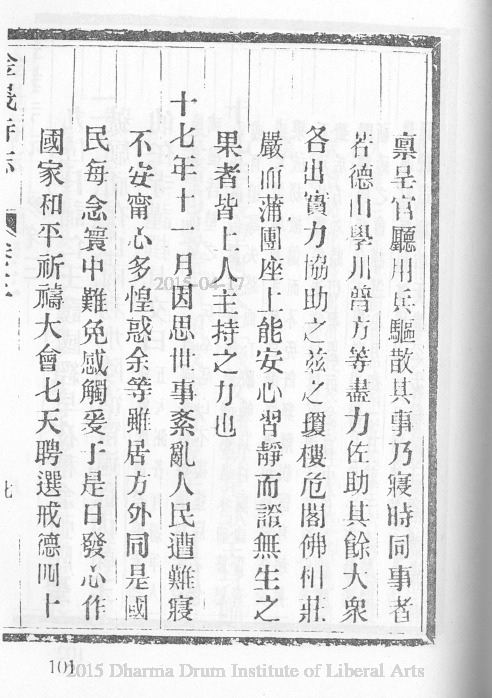 禀呈官廳用兵驅散其事乃寢時同事者
若德山學川普方等盡力佐助其餘大衆
各出實力協助之茲之瓊樓危閣佛相莊
嚴而蒲團座上能安心習靜而證無生之
果者皆上人主持之力也
十七年十一月因思世事紊亂人民遭難寢
不安甯心多惶惑余等雖居方外同是國
民每念寰中難免感觸爰于是日發心作
國家和平祈禱大會七天聘選戒德四十
2015-04-17
101
2015 Dharma Drum Institute of Liberal Arts